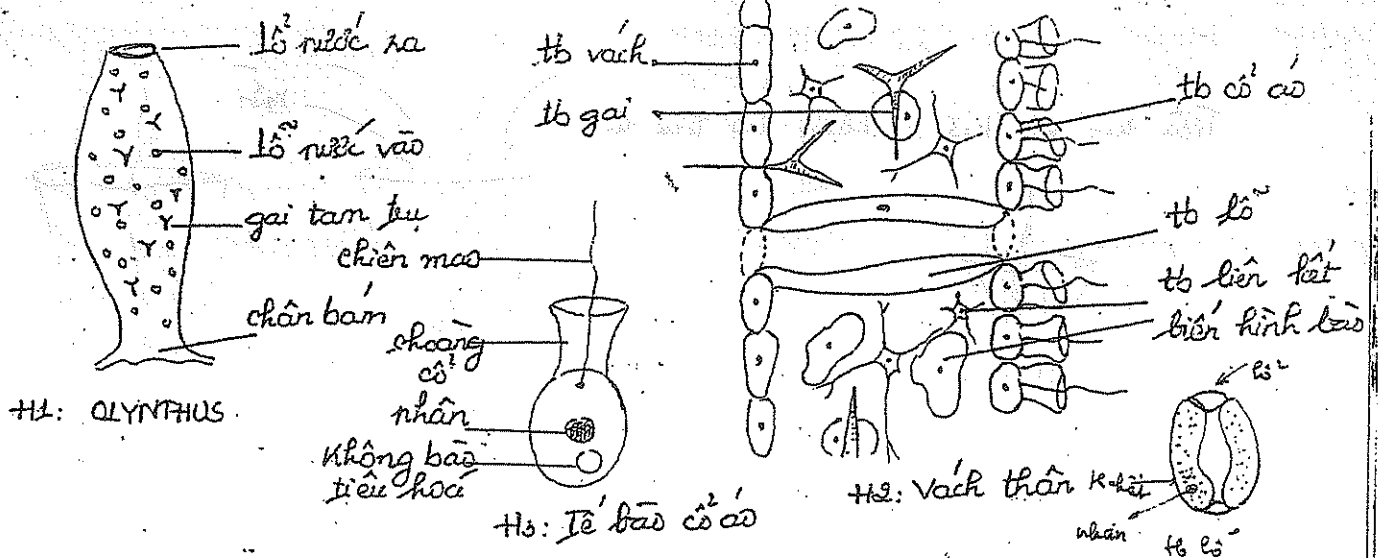 lỗ nước ra
lỗ nước vào
gai tam trụ
chân bám
H1: OLYNTHUS
chiên mao
choàng
cổ
nhân
Không bào
tiêu hoá
H3: Tế bào cổ áo
tb vách
tb gai
tb cổ áo
tb lỗ
tb liên kết
biến hình bào
H2: Vách thân
lỗ
nhân
tb lỗ